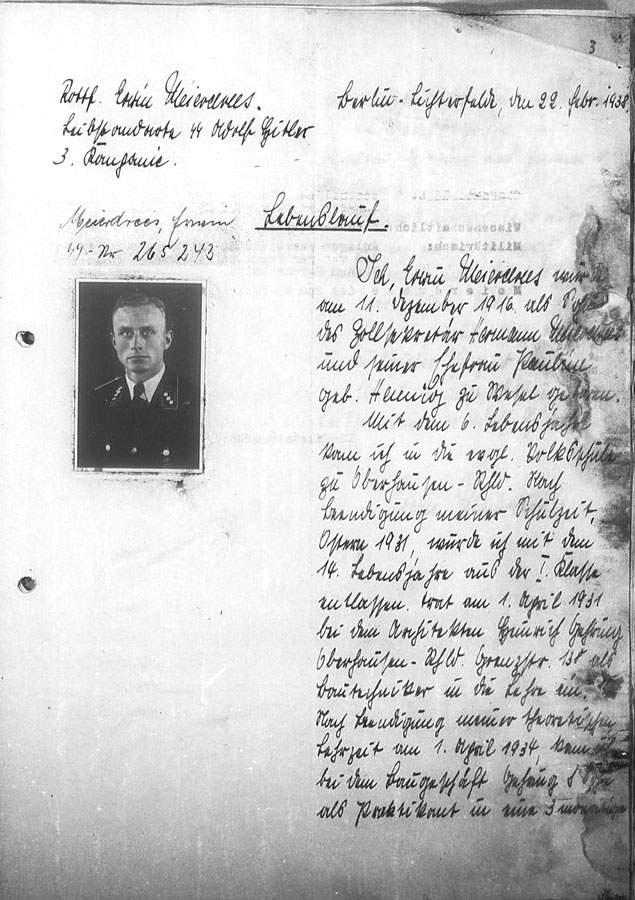 3
Rottf. Erwin Meierdrees.
Berlin-Lichterfelde, den 22. Febr. 1938.
Leibstandarte SS Adolf Hitler
3. Kompanie.
Meierdrees, Erwin
SS-Nr. 265 243
Lebenslauf.
Wissenschaftlich:
Militärisch:
Ich, Erwin Meierdrees wurde
am 11. Dezember 1916 als Sohn
des Zollsekretär Hermann Meierdrees
und seiner Ehefrau Pauline
geb. Hennig zu Wesel geboren.
Mit dem 6. Lebensjahre
kam ich in die evgl. Volksschule
zu Oberhausen-Rhld. Nach
Beendigung meiner Schulzeit,
Ostern 1931, wurde ich mit dem
14. Lebensjahre aus der I. Klasse
entlassen. trat am 1. April 1931
bei dem Architekten Heinrich Gehring
Oberhausen-Rhld. Grenzstr. 138 als
Bautechniker in die Lehre ein.
Nach Beendigung meiner theoretischen
Lehrzeit am 1. April 1934, kam ich
bei dem Baugeschäft Gehring &
als Praktikant in eine 3 monatige